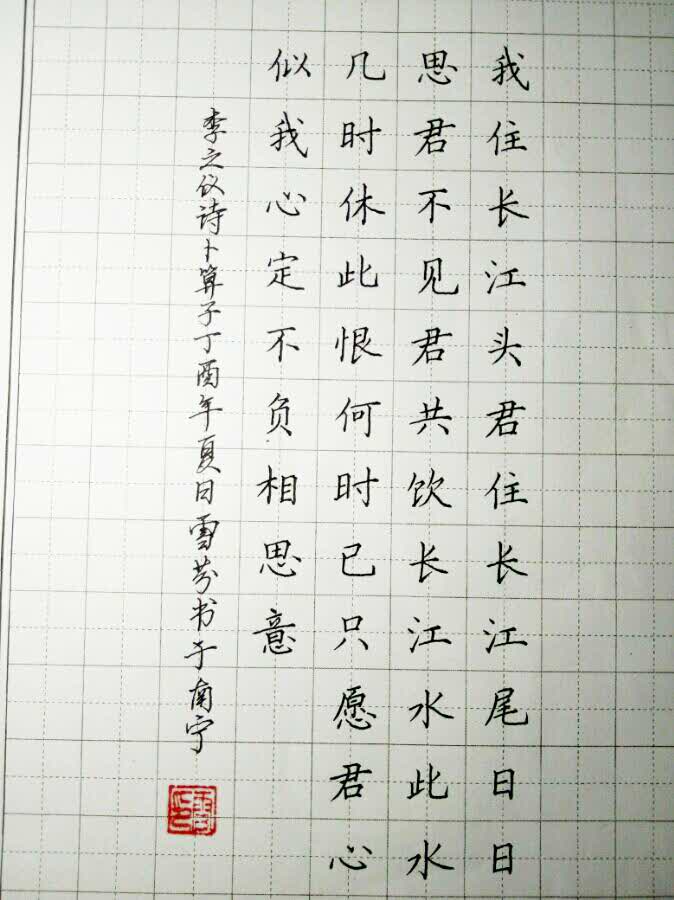 我住长江头君住长江尾日日
思君不见君共饮长江水此水
几时休此恨何时已只愿君心
似我心定不负相思意
李之仪诗卜算子丁酉年夏日雪芬书于南宁